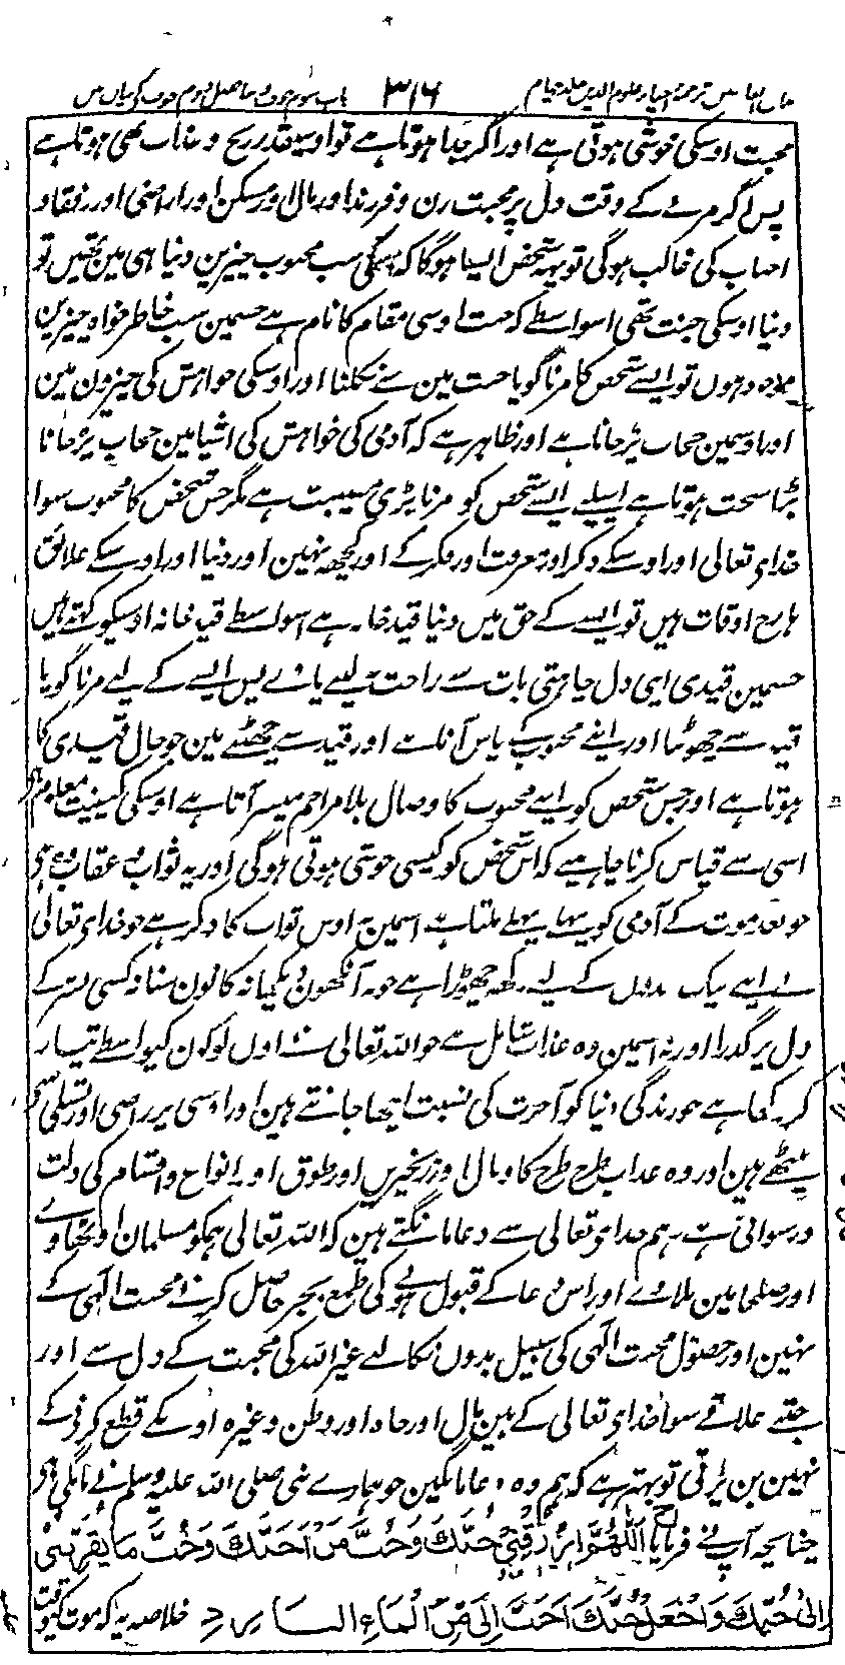 مذاق العارفین ترجمہ احیاء علوم الدین جلد چہارم ۳۱۶ باب سوم خوف و رجا فصل دوم خوف کے بیان میں
محبت اوسکی خوشی ہوتی ہے اور اگر جدا ہوتا ہے تو اوسیقدر رنج و عذاب بھی ہوتا ہے
پس اگر مرنے کے وقت دل پر محبت زن و فرزند اور مال اور مسکن اور اراضی اور رفقا و
احباب کی غالب ہوگی تو یہہ شخص ایسا ہوگا کہ اسکی سب محبوب چیزین دنیا ہی مین تھین تو
دنیا اوسکی جنت تھی اسواسطے کہ جنت اوسی مقام کا نام ہے جسمین سب خاطر خواہ چیزین
موجود ہوں تو ایسے شخص کا مرنا گویا جنت مین سے نکلنا اور اوسکی خواہش کی چیزون مین
اور اوسمین حجاب پڑجانا ہے اور ظاہر ہے کہ آدمی کی خواہش کی اشیا مین حجاب پڑجانا
بڑا سخت ہوتا ہے اسیلیے ایسے شخص کو مرنا بڑی مصیبت ہے مگر جس شخص کا محبوب سوا
خدای تعالی اور اوسکے ذکر اور معرفت اور فکر کے اور کچھہ نہین اور دنیا اور اوسکے علائق
ہارج اوقات ہیں تو ایسے کے حق میں دنیا قیدخانہ ہے اسواسطے قیدخانہ اوسیکو کہتے ہیں
جسمین قیدی اپنی دل چاہتی بات سے راحت نلینے پاوے پس ایسے کے لیے مرنا گویا
قید سے چھوٹنا اور اپنے محبوب کے پاس آنا ہے اور قید سے چھٹنے مین جو حال قیدی کا
ہوتا ہے اور جس شخص کو اپنے محبوب کا وصال بلا مزاحم میسر آتا ہے اوسکی کیفیت معلوم ہی
اسی سے قیاس کرنا چاہیے کہ اس شخص کو کیسی خوشی ہوتی ہوگی اور یہ ثواب و عقاب وہ ہی
جو بعد موت کے آدمی کو سب سے پہلے ملتا ہے اسمین نہ اوس ثواب کا ذکر ہے جو خدای تعالی
نے اپنے نیک بندوں کے لیے رکھہ چھوڑا ہے جو نہ آنکھون نے دیکھا نہ کانون سنا نہ کسی بشر کے
دل پر گذرا اور نہ اسمین وہ عذاب شامل ہے جو اللہ تعالی نے اون لوگون کیواسطے تیار
کر رکھا ہے جو زندگی دنیا کو آخرت کی نسبت اچھا جانتے ہین اور اوسی پر راضی اور تسلی سی
بیٹھے ہین اور وہ عذاب طرح طرح کا وبال اور زنجیریں اور طوق اور انواع و اقسام کی ذلت
ورسوائی ہے ہم خدای تعالی سے دعا مانگتے ہین کہ اللہ تعالی ہمکو مسلمان اوٹھاوے
اور صلحا مین ملاوے اور اس دعا کے قبول ہونے کی طمع بجز حاصل کرنے محبت الٰہی کے
نہین اور حصول محبت الٰہی کی سبیل بدون نکالے غیر اللہ کی محبت کے دل سے اور
جتنے علاقے سوا خدای تعالی کے ہین مال اور جاہ اور وطن وغیرہ اونکے قطع کرنی کے
نہین بن پڑتی تو بہتر ہے کہ ہم وہ دعا مانگین جو ہمارے نبی صلی اللہ علیہ وسلم نے مانگی ہی
چنانچہ آپ نے فرمایا اَللّٰهُمَّ ارْزُقْنِيْ حُبَّكَ وَحُبَّ مَنْ اَحَبَّكَ وَحُبَّ مَا يُقَرِّبُنِيْ
اِلٰى حُبِّكَ وَاجْعَلْ حُبَّكَ اَحَبَّ اِلَيَّ مِنَ الْمَاءِ الْبَارِدِ خلاصہ یہ کہ موت کیوقت